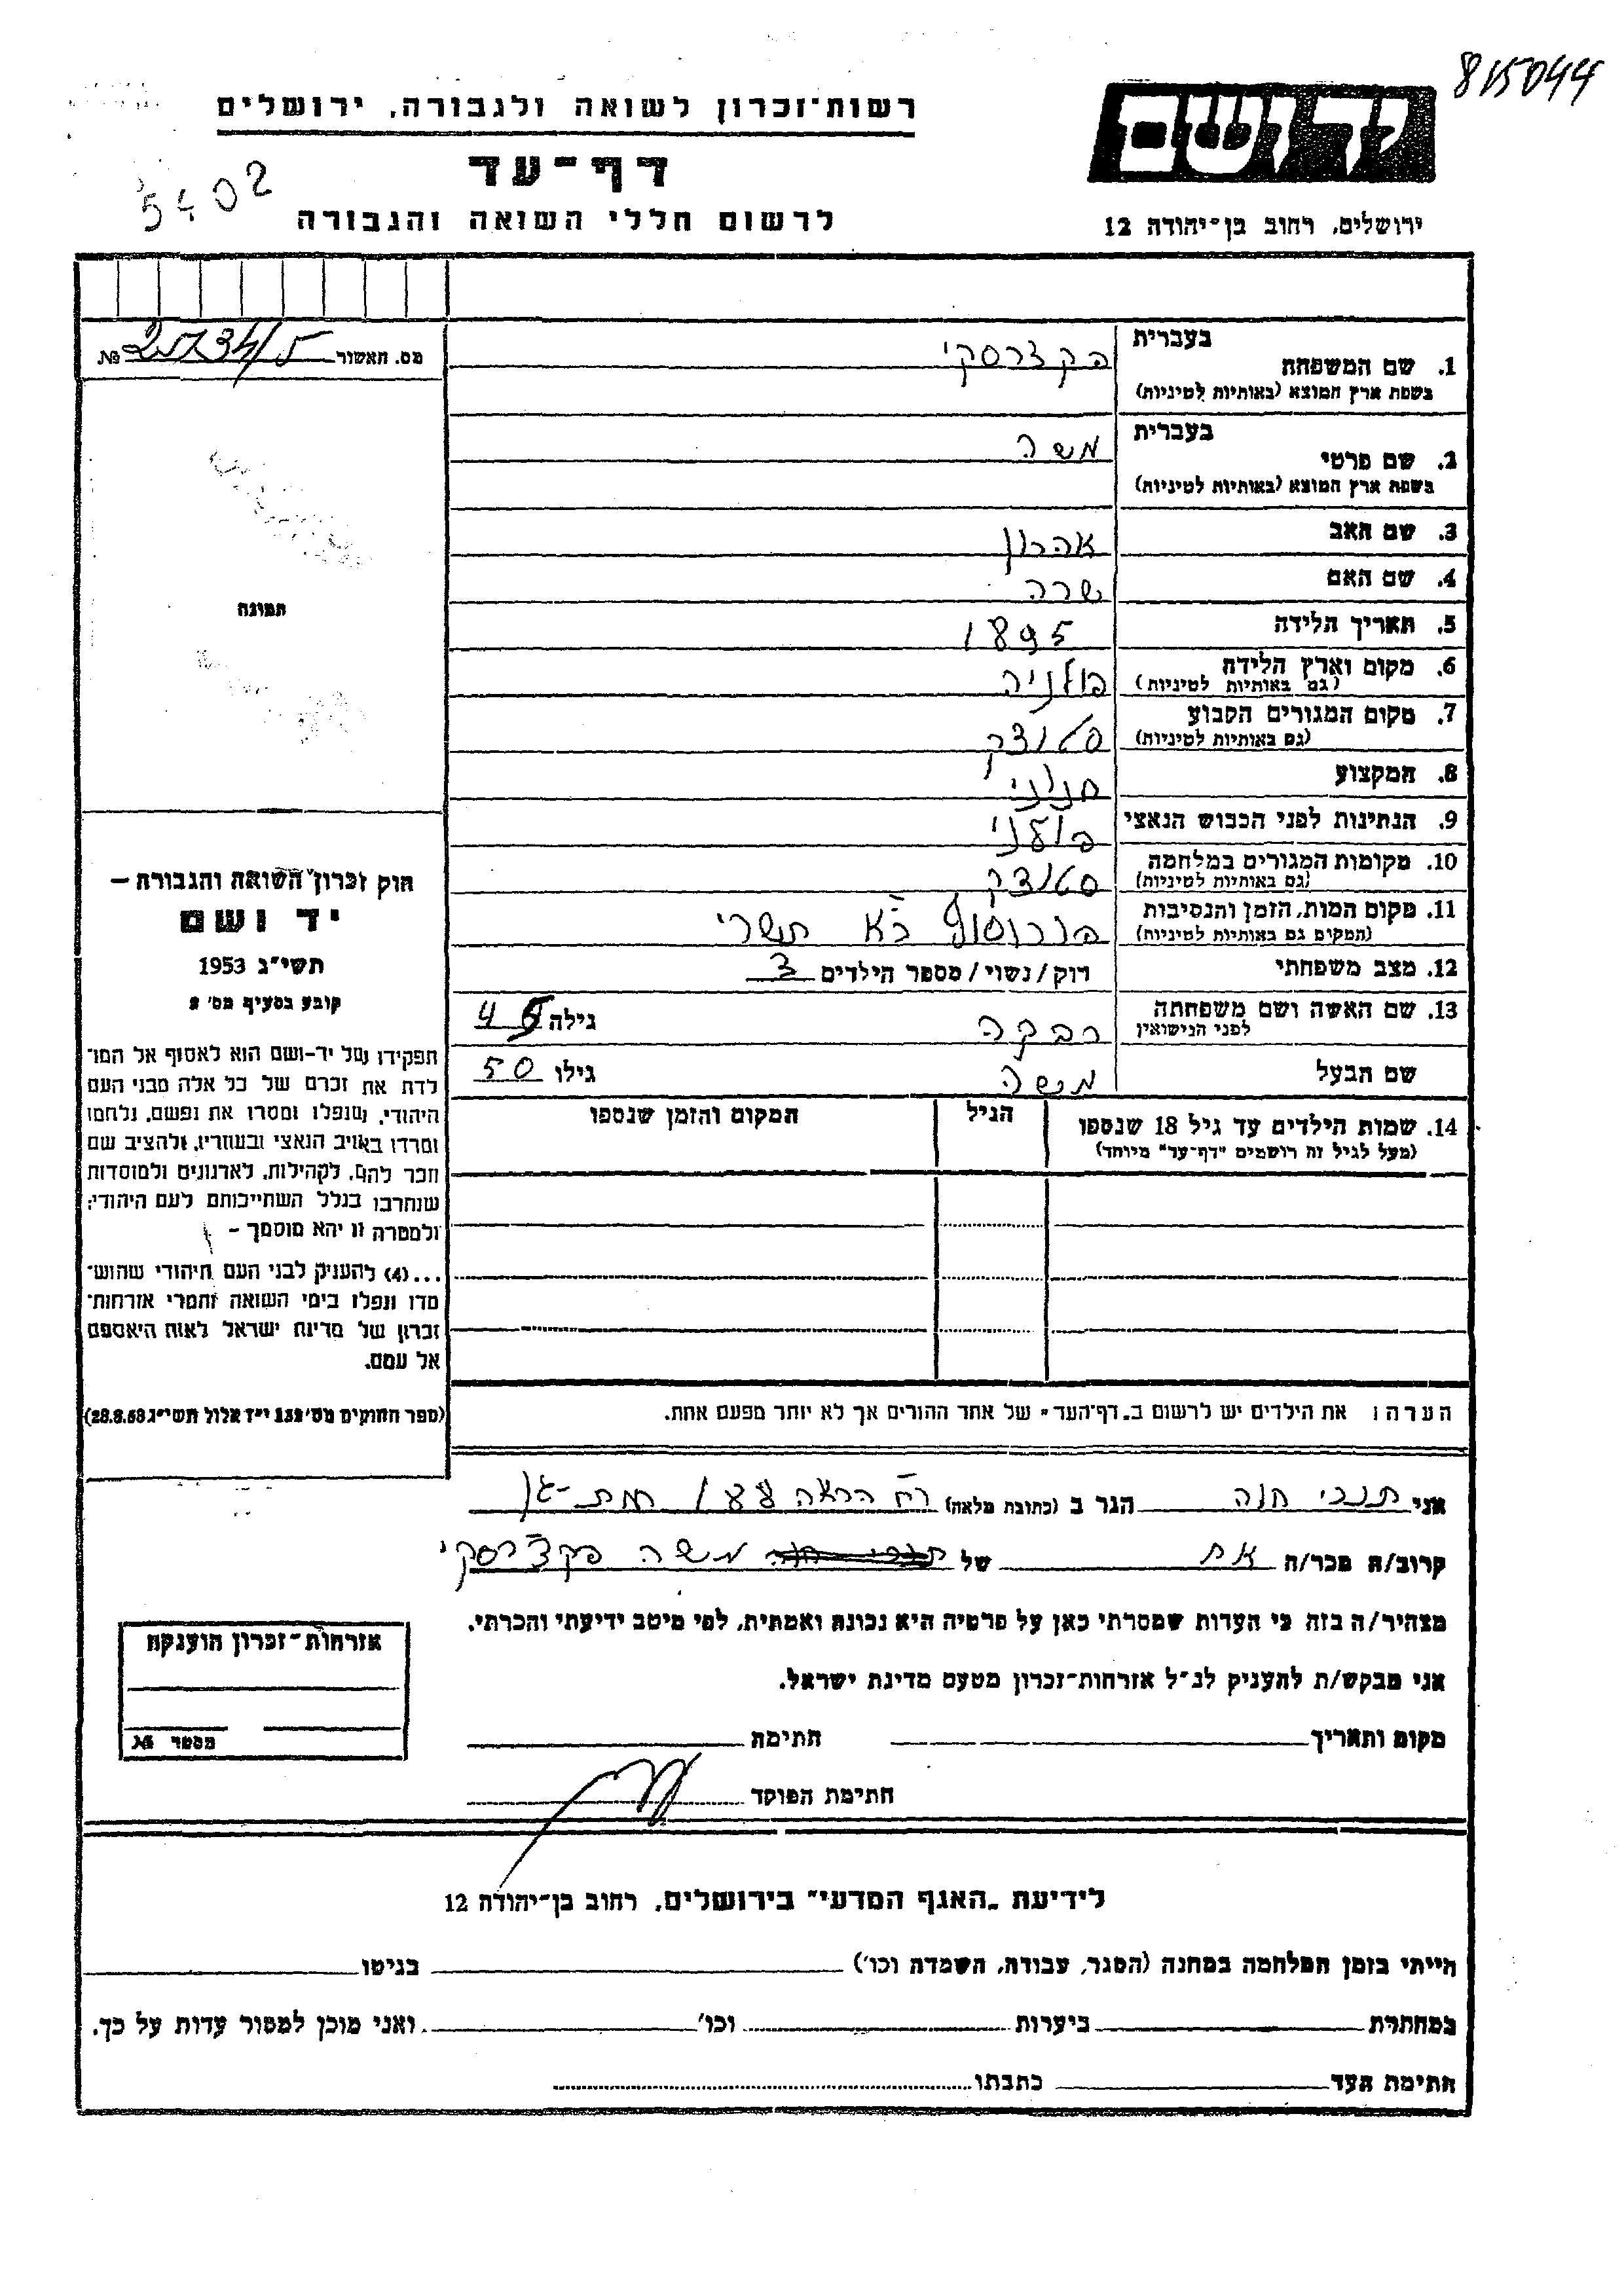 815044
רשות־זכרון לשואה ולגבורה, ירושלים
דף־עד
5402
לרשום חללי השואה והגבורה
ירושלים, רחוב בן־יהודה 12
מס. האשור 25734/5 №
בעברית
1. שם המשפחה פקצרסקי
בשפת ארץ המוצא (באותיות לטיניות)
בעברית
2. שם פרטי משה
בשפת ארץ המוצא (באותיות לטיניות)
3. שם האב אהרון
4. שם האם שרה
5. תאריך הלידה 1895
6. מקום וארץ הלידה פולניה
(גם באותיות לטיניות)
7. מקום המגורים הקבוע
(גם באותיות לטיניות)
8. המקצוע
9. הנתינות לפני הכבוש הנאצי פולני
10. מקומות המגורים במלחמה
(גם באותיות לטיניות)
11. מקום המות, הזמן והנסיבות תשרי
(המקום גם באותיות לטיניות)
12. מצב משפחתי רוק/נשוי/מספר הילדים 3
13. שם האשה ושם משפחתה רבקה גילה 45
לפני הנישואין
שם הבעל משה גילו 50
14. שמות הילדים עד גיל 18 שנספו הגיל המקום והזמן שנספו
(מעל לגיל זה רושמים "דף־עד" מיוחד)
תמונה
חוק זכרון השואה והגבורה —
יד ושם
תשי"ג 1953
קובע בסעיף מס' 2
תפקידו של יד-ושם הוא לאסוף אל המו־
לדת את זכרם של כל אלה מבני העם
היהודי, שנפלו ומסרו את נפשם, נלחמו
ומרדו באויב הנאצי ובעוזריו, ולהציב שם
וזכר להם, לקהילות, לארגונים ולמוסדות
שנחרבו בגלל השתייכותם לעם היהודי;
ולמטרה זו יהא מוסמך –
...(4) להעניק לבני העם היהודי שהוש־
מדו ונפלו בימי השואה והמרי אזרחות־
זכרון של מדינת ישראל לאות היאספם
אל עמם.
(ספר החוקים מס' 132 י"ז אלול תשי"ג 28.8.53)
הערה: את הילדים יש לרשום ב„דף־העד" של אחד ההורים אך לא יותר מפעם אחת.
אני חנה הגר ב (כתובת מלאה) רמת-גן
קרוב/ה מכר/ה של משה פקצרסקי
מצהיר/ה בזה כי העדות שמסרתי כאן על פרטיה היא נכונה ואמתית, לפי מיטב ידיעתי והכרתי.
אני מבקש/ת להעניק לנ"ל אזרחות־זכרון מטעם מדינת ישראל.
מקום ותאריך חתימה
חתימת הפוקד
אזרחות־זכרון הוענקה
מספר №
לידיעת „האגף המדעי" בירושלים, רחוב בן־יהודה 12
הייתי בזמן המלחמה במחנה (הסגר, עבודה, השמדה וכו') בגיטו
במחתרת ביערות וכו' ואני מוכן למסור עדות על כך.
חתימת העד כתבתו